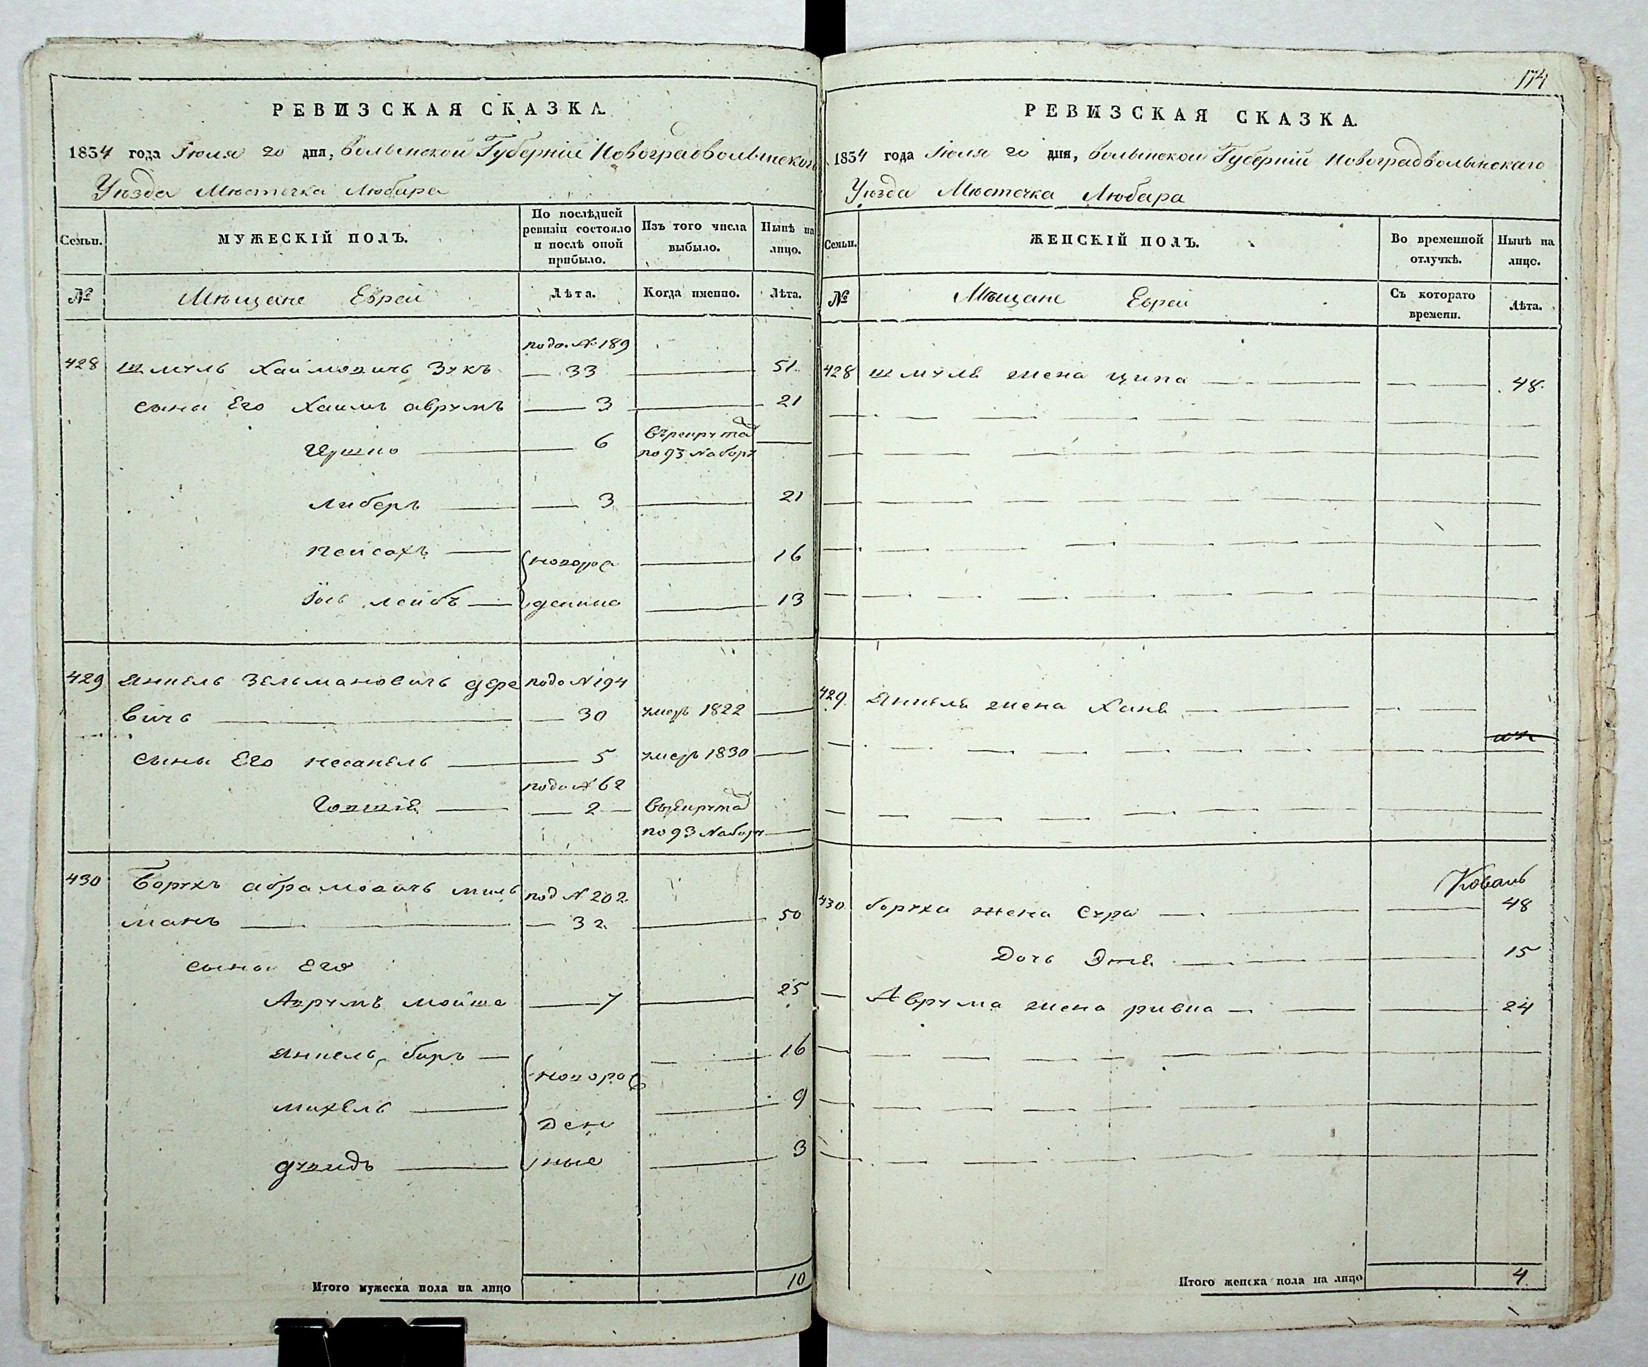 РЕВИЗСКАЯ СКАЗКА.
1834 года Июля 20 дня, Волынской Губерніи Новоградволынскаго
Уѣзда Мѣстечка Любара
Семьи.
МУЖЕСКІЙ ПОЛЪ.
По послѣдней ревизіи состояло и послѣ оной прибыло.
Изъ того числа выбыло.
Нынѣ на лицо.
№
Мѣщане Евреи
Лѣта.
Когда именно.
Лѣта.
подъ № 189
428 Шмуль Хаимовичъ Зукъ 33 51
сыны Его Хаимъ Аврумъ 3 21
6 въ рекруты
по 93 Набору
Либеръ 3 21
Пейсахъ новорож 16
Лейбъ денные 13
429 Янкель Зельмановичъ подъ № 194
вичъ 30 умеръ 1822
сыны Его Несанель 5 умеръ 1830
подъ № 62
2 въ рекруты
по 93 Набору
430 Борухъ Абрамовичъ Миль под № 202
манъ 32 50
сыны Его
Аврумъ Мойше 7 25
Янкель Беръ 16
новорож
Михель 9
ден
Дувидъ ные 3
Итого мужеска пола на лицо 10
174
РЕВИЗСКАЯ СКАЗКА.
1834 года Июля 20 дня, Волынской Губерніи Новоградволынскаго
Уѣзда Мѣстечка Любара
Семьи.
ЖЕНСКІЙ ПОЛЪ.
Во временной отлучкѣ.
Нынѣ на лицо.
№
Мѣщане Евреи
Съ котораго времени.
Лѣта.
428 Шмуля жена Ципа 48
429 Янкеля жена Хана
430 Боруха жена Сура 48
Дочь Этя 15
Аврума жена Ривка 24
Итого женска пола на лицо 4